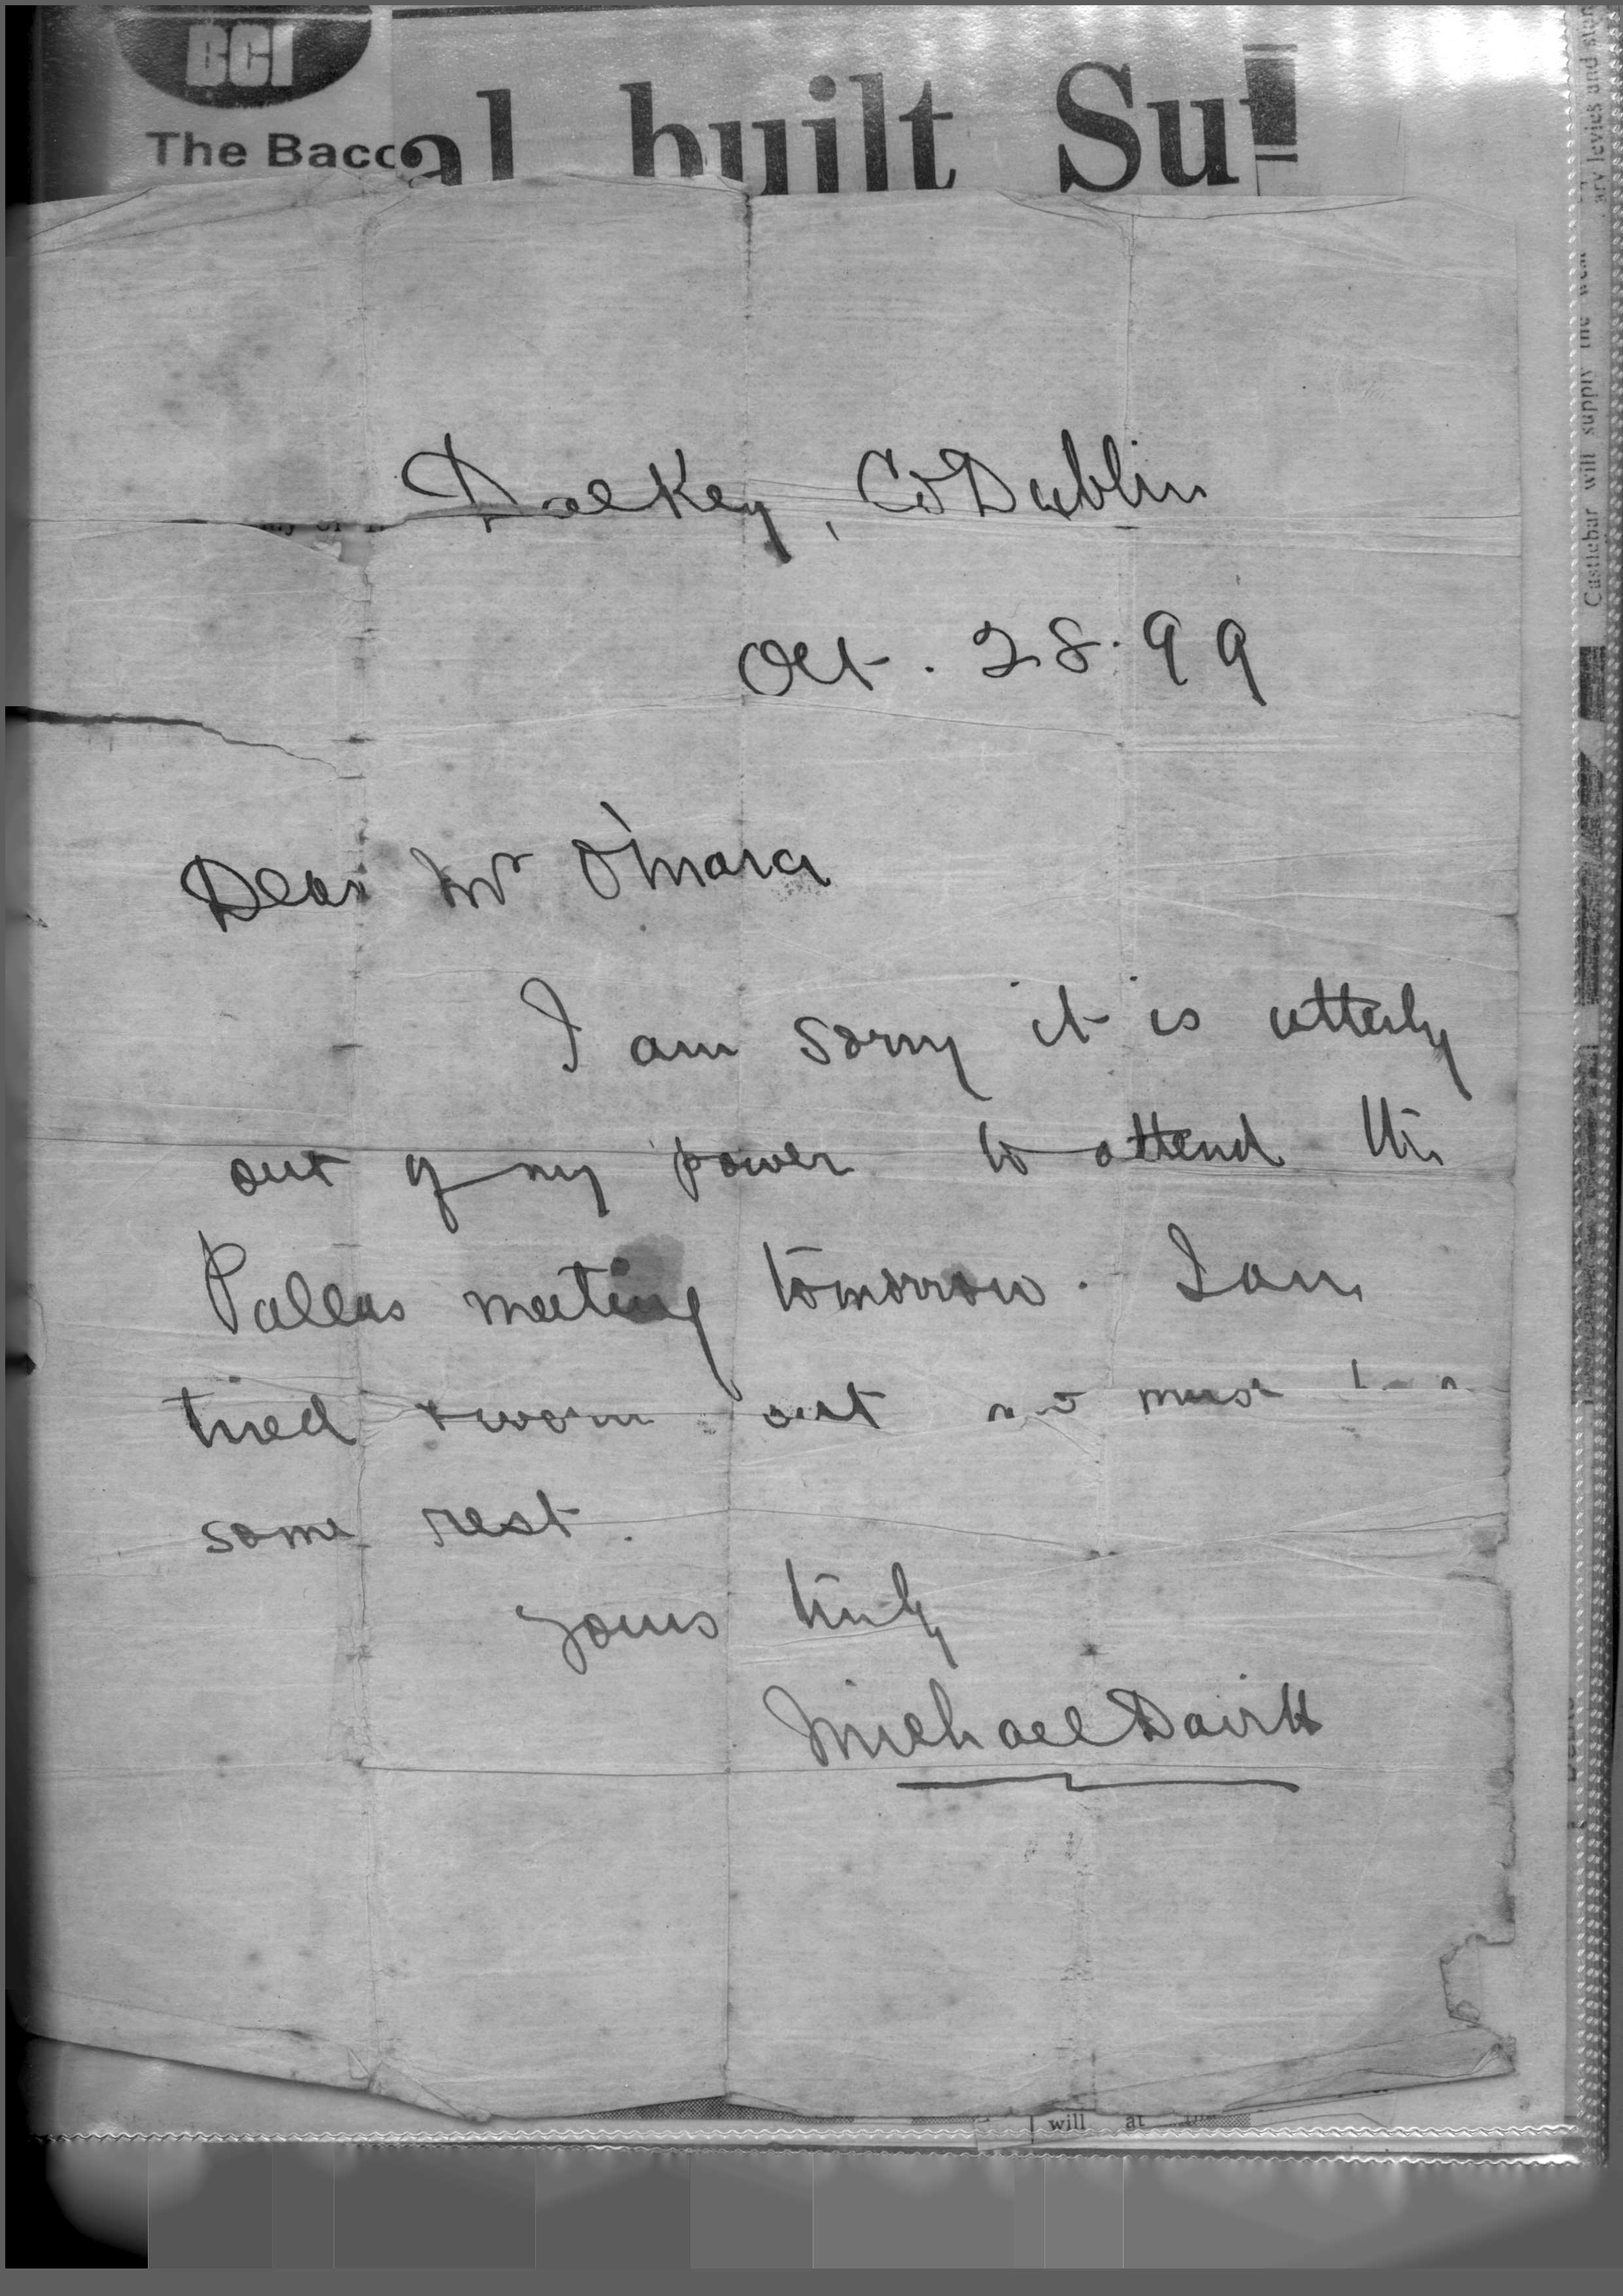 BCI
The Bacc
al built Su
Dalkey, Co Dublin
Oct. 28. 99
Dear Mr O'Mara
I am sorry it is utterly
out of my power to attend the
Pallas meeting tomorrow. I am
tired & worn out and must
some rest.
Yours truly
Michael Davitt
will at
Castlebar will supply the
ary levies and